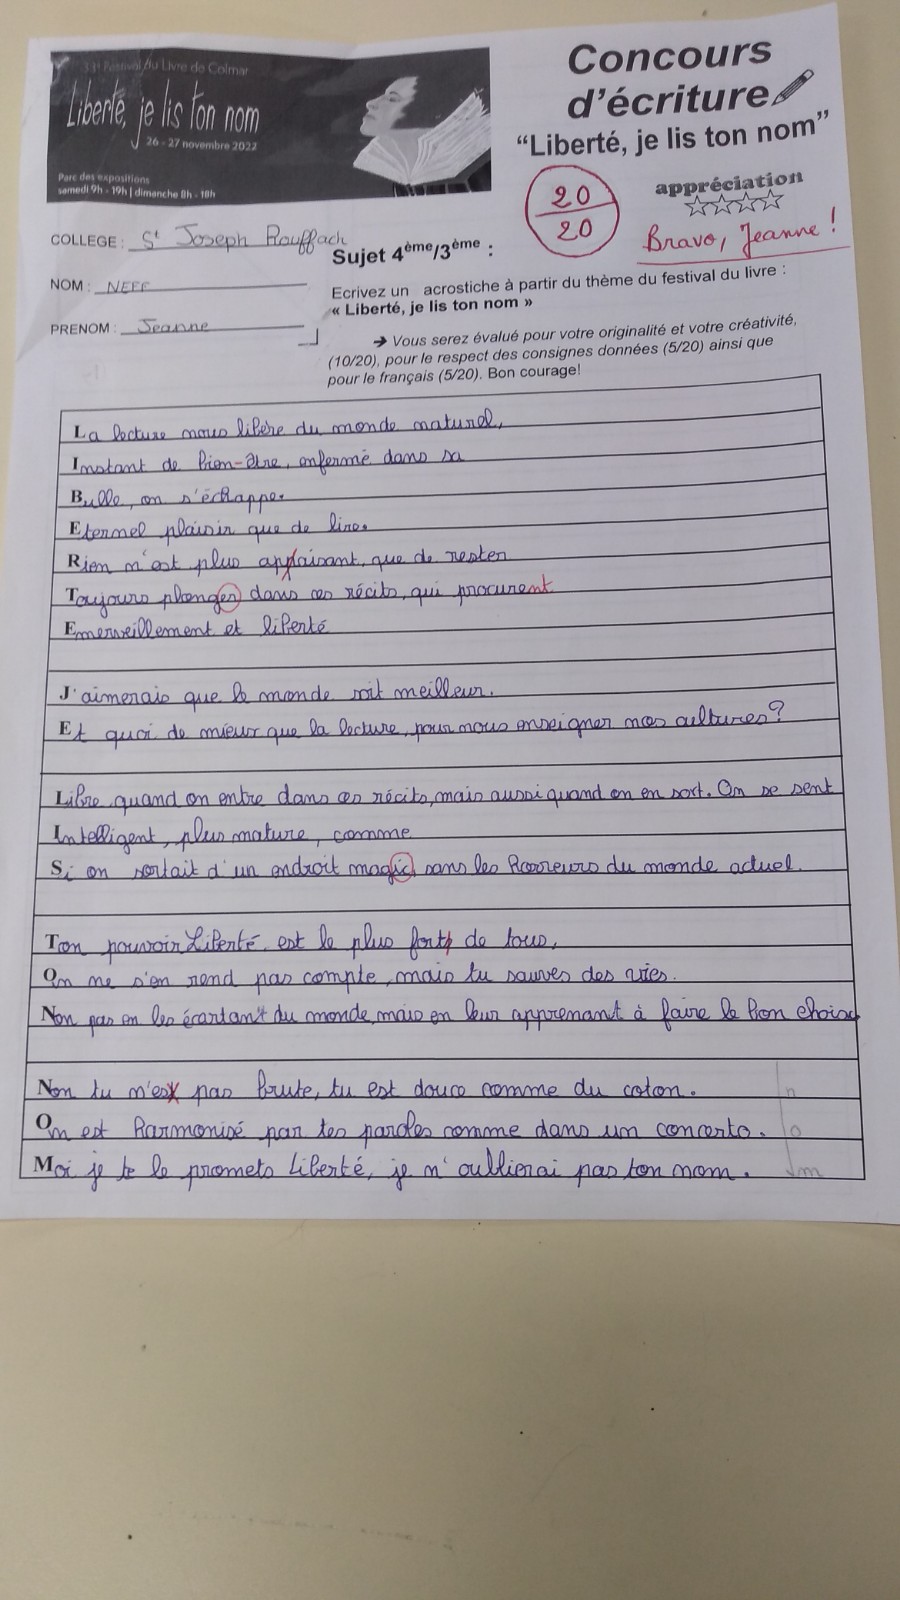 33e Festival du Livre de Colmar
Liberté, je lis ton nom
26 - 27 novembre 2022
Parc des expositions
samedi 9h - 19h | dimanche 8h - 18h
Concours
d'écriture
“Liberté, je lis ton nom”
20
20
appréciation
Bravo, Jeanne !
COLLEGE : St Joseph Rouffach
NOM : NEFF
PRENOM : Jeanne
Sujet 4ème/3ème :
Ecrivez un acrostiche à partir du thème du festival du livre :
« Liberté, je lis ton nom »
➔ Vous serez évalué pour votre originalité et votre créativité,
(10/20), pour le respect des consignes données (5/20) ainsi que
pour le français (5/20). Bon courage!
La lecture nous libère du monde naturel,
Instant de bien-être, enfermé dans sa
Bulle, on s'échappe.
Eternel plaisir que de lire.
Rien n'est plus applaisant, que de rester
Toujours plonger dans ces récits, qui procurent
Emerveillement et liberté
J'aimerais que le monde soit meilleur.
Et quoi de mieux que la lecture, pour nous enseigner nos cultures?
Libre quand on entre dans ces récits, mais aussi quand on en sort. On se sent
Intelligent, plus mature, comme
Si on sortait d'un endroit magic sans les horreurs du monde actuel.
Ton pouvoir Liberté est le plus fort de tous,
On ne s'en rend pas compte, mais tu sauves des vies.
Non pas en les écartant du monde, mais en leur apprenant à faire le bon choix
Non tu n'es pas brute, tu est douce comme du coton.
On est harmonisé par tes paroles comme dans un concerto.
Moi je te le promets Liberté, je n'oublierai pas ton nom.
n
o
m